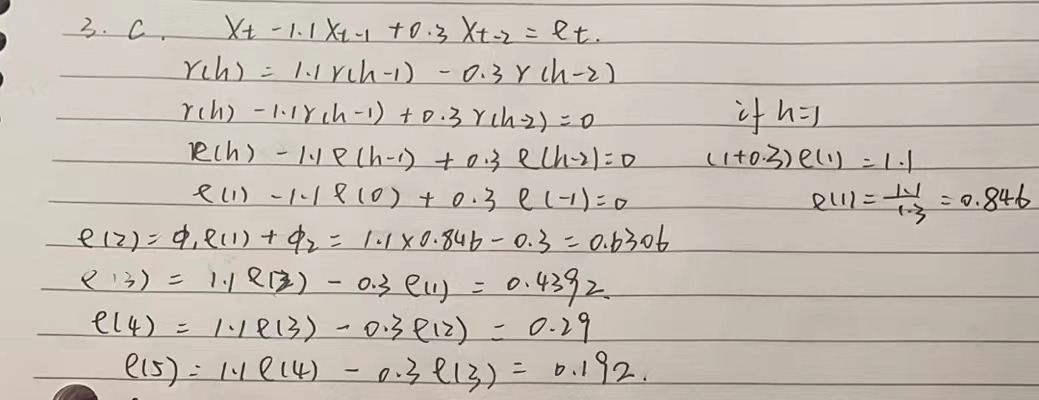 3. C. Xt - 1.1Xt-1 + 0.3 Xt-2 = et.
γ(h) = 1.1γ(h-1) - 0.3γ(h-2)
γ(h) - 1.1γ(h-1) + 0.3γ(h-2) = 0 if h=1
ρ(h) - 1.1ρ(h-1) + 0.3ρ(h-2) = 0 (1+0.3)ρ(1) = 1.1
ρ(1) - 1.1ρ(0) + 0.3ρ(-1) = 0 ρ(1) = 1.1/1.3 = 0.846
ρ(2) = φ1ρ(1) + φ2 = 1.1×0.846 - 0.3 = 0.6306
ρ(3) = 1.1ρ(2) - 0.3ρ(1) = 0.4392.
ρ(4) = 1.1ρ(3) - 0.3ρ(2) = 0.29
ρ(5) = 1.1ρ(4) - 0.3ρ(3) = 0.192.